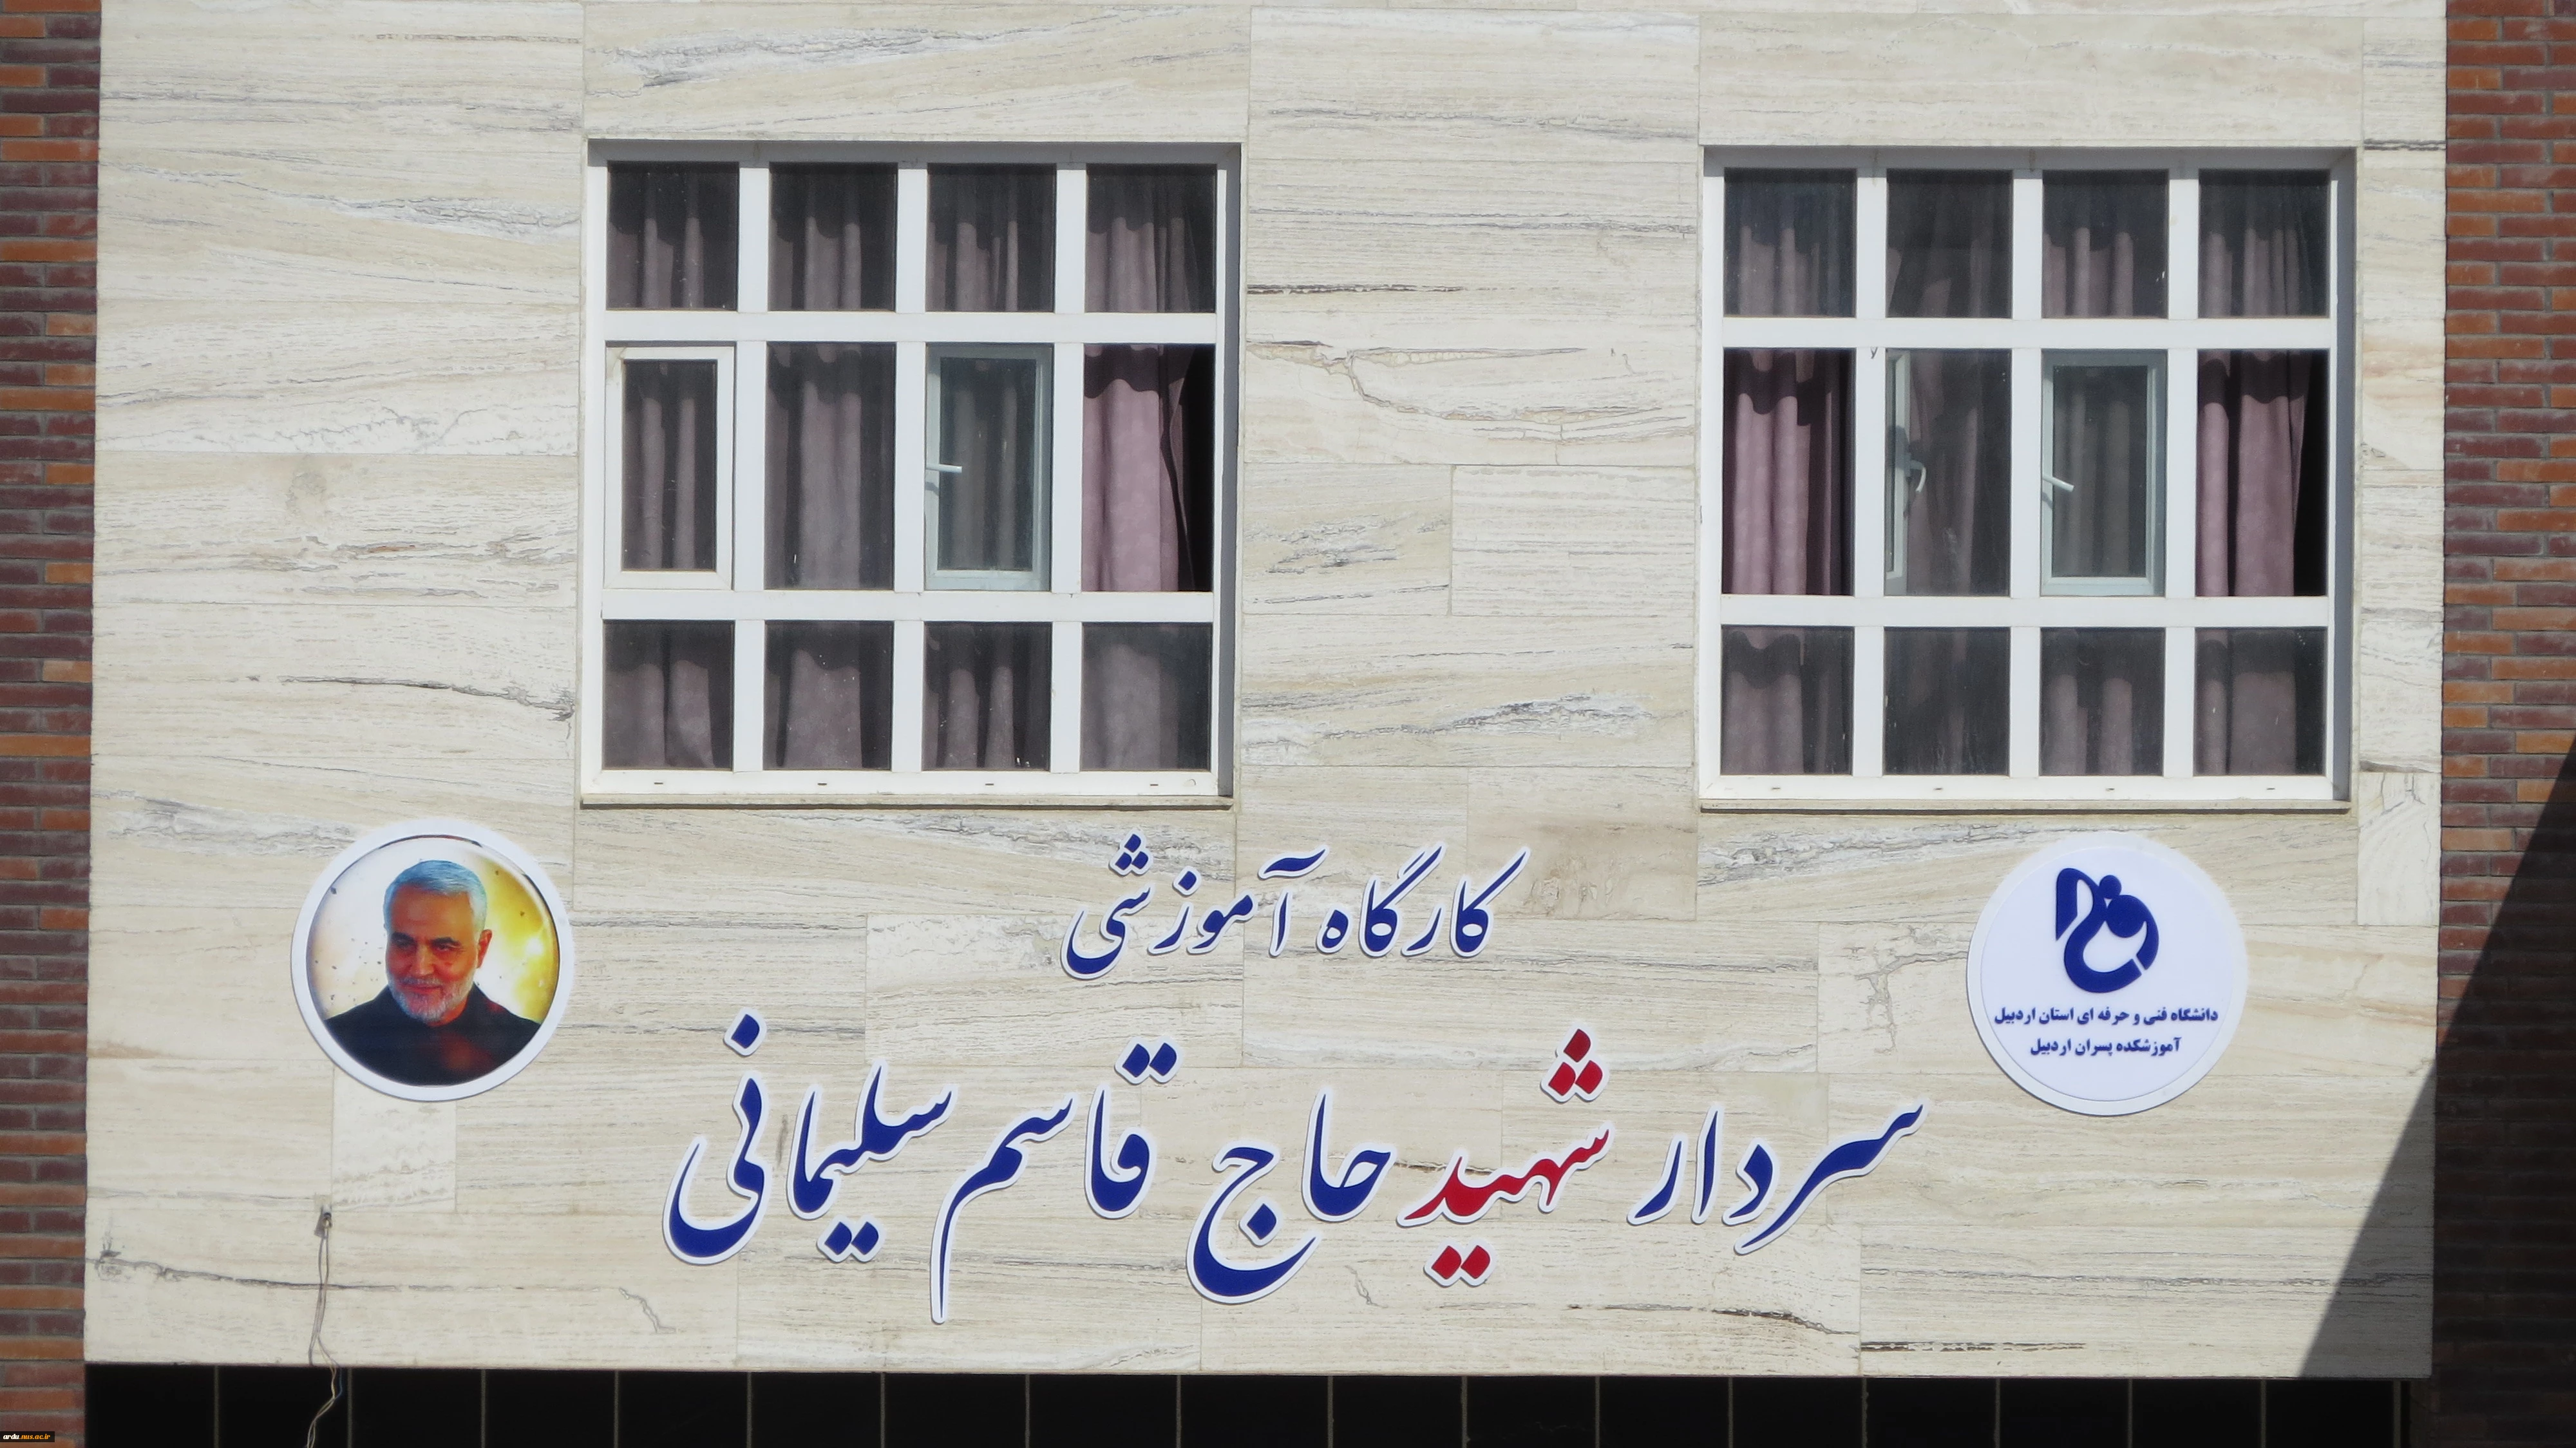 کارگاه آموزشی
سردار شهید حاج قاسم سلیمانی
دانشگاه فنی و حرفه ای استان اردبیل
آموزشکده پسران اردبیل
ardu.nus.ac.ir